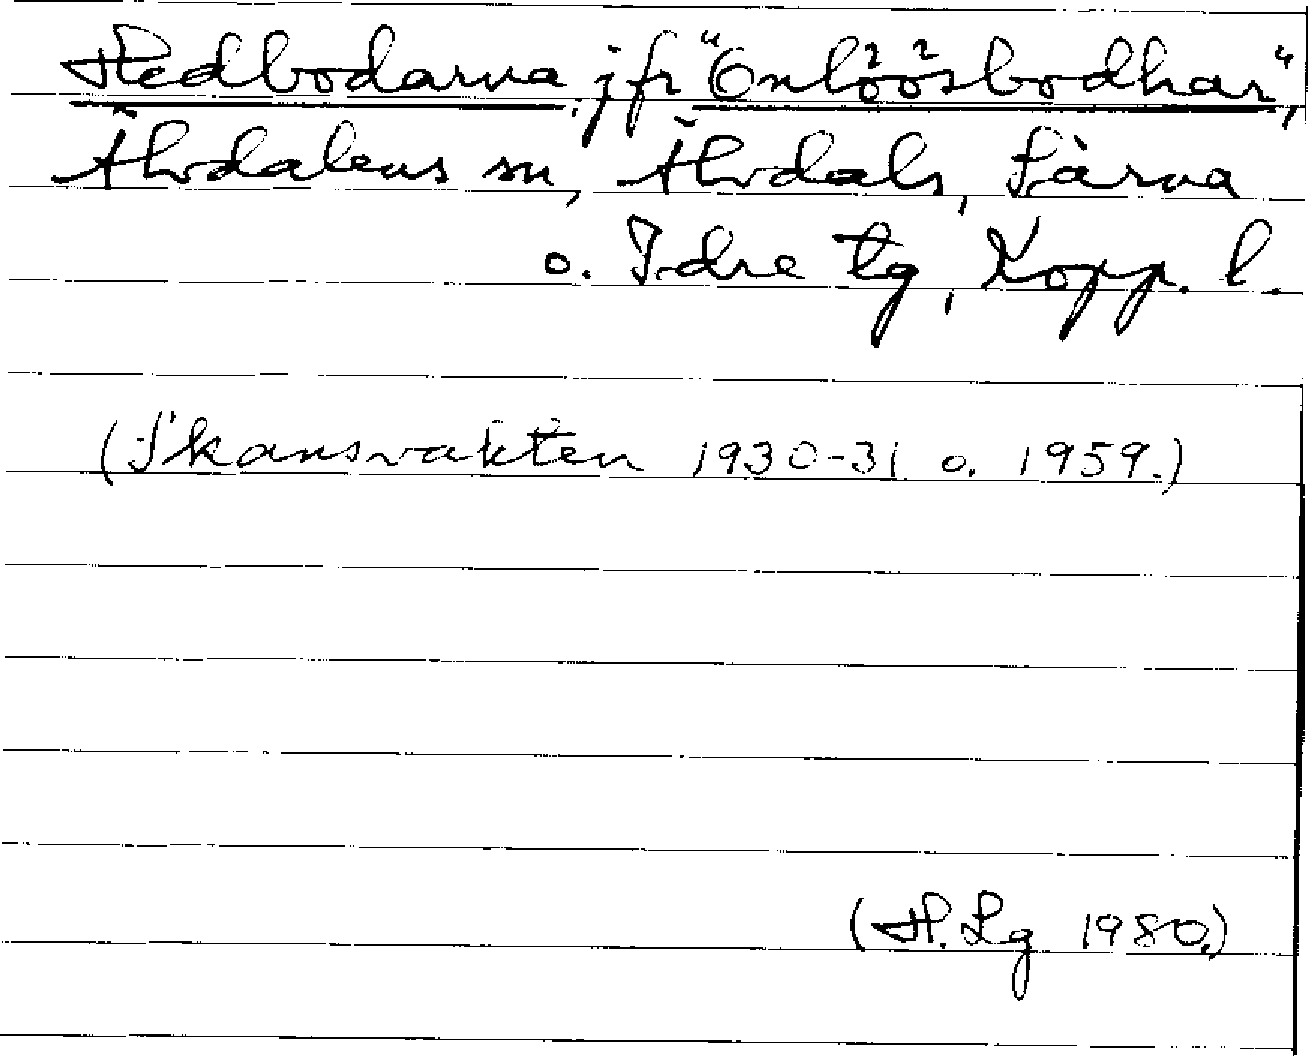 Hedbodarna jfr "Enlöösbodhar",
Älvdalens sn, Älvdals, Särna
o. Idre tg, Kopp. l.
(Skansvakten 1930-31 o. 1959.)
(H. Lg 1980.)